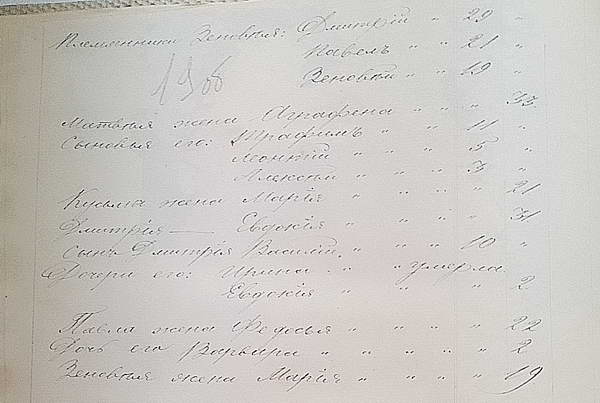 Племянники Зеновья: Дмитрій " " 29 "
Павелъ " " 21 "
Зеновій " " 19 "
1906
Матвья жена Аграфена " " " 33.
Сыновья его: Трафимъ " " 11 "
Леонтій " " 5 "
Алексѣй " " 3 "
Кузьмы жена Марія " " " 21
Дмитрія — Евдокія " " " 31
Сынъ Дмитрія Василій " " 10 "
Дочери его: Ирина " " умерла.
Евдокія " " " 2
Павла жена Федосья " " " 22
Дочь его Варвара " " " 2
Зеновья жена Марія " " " 19